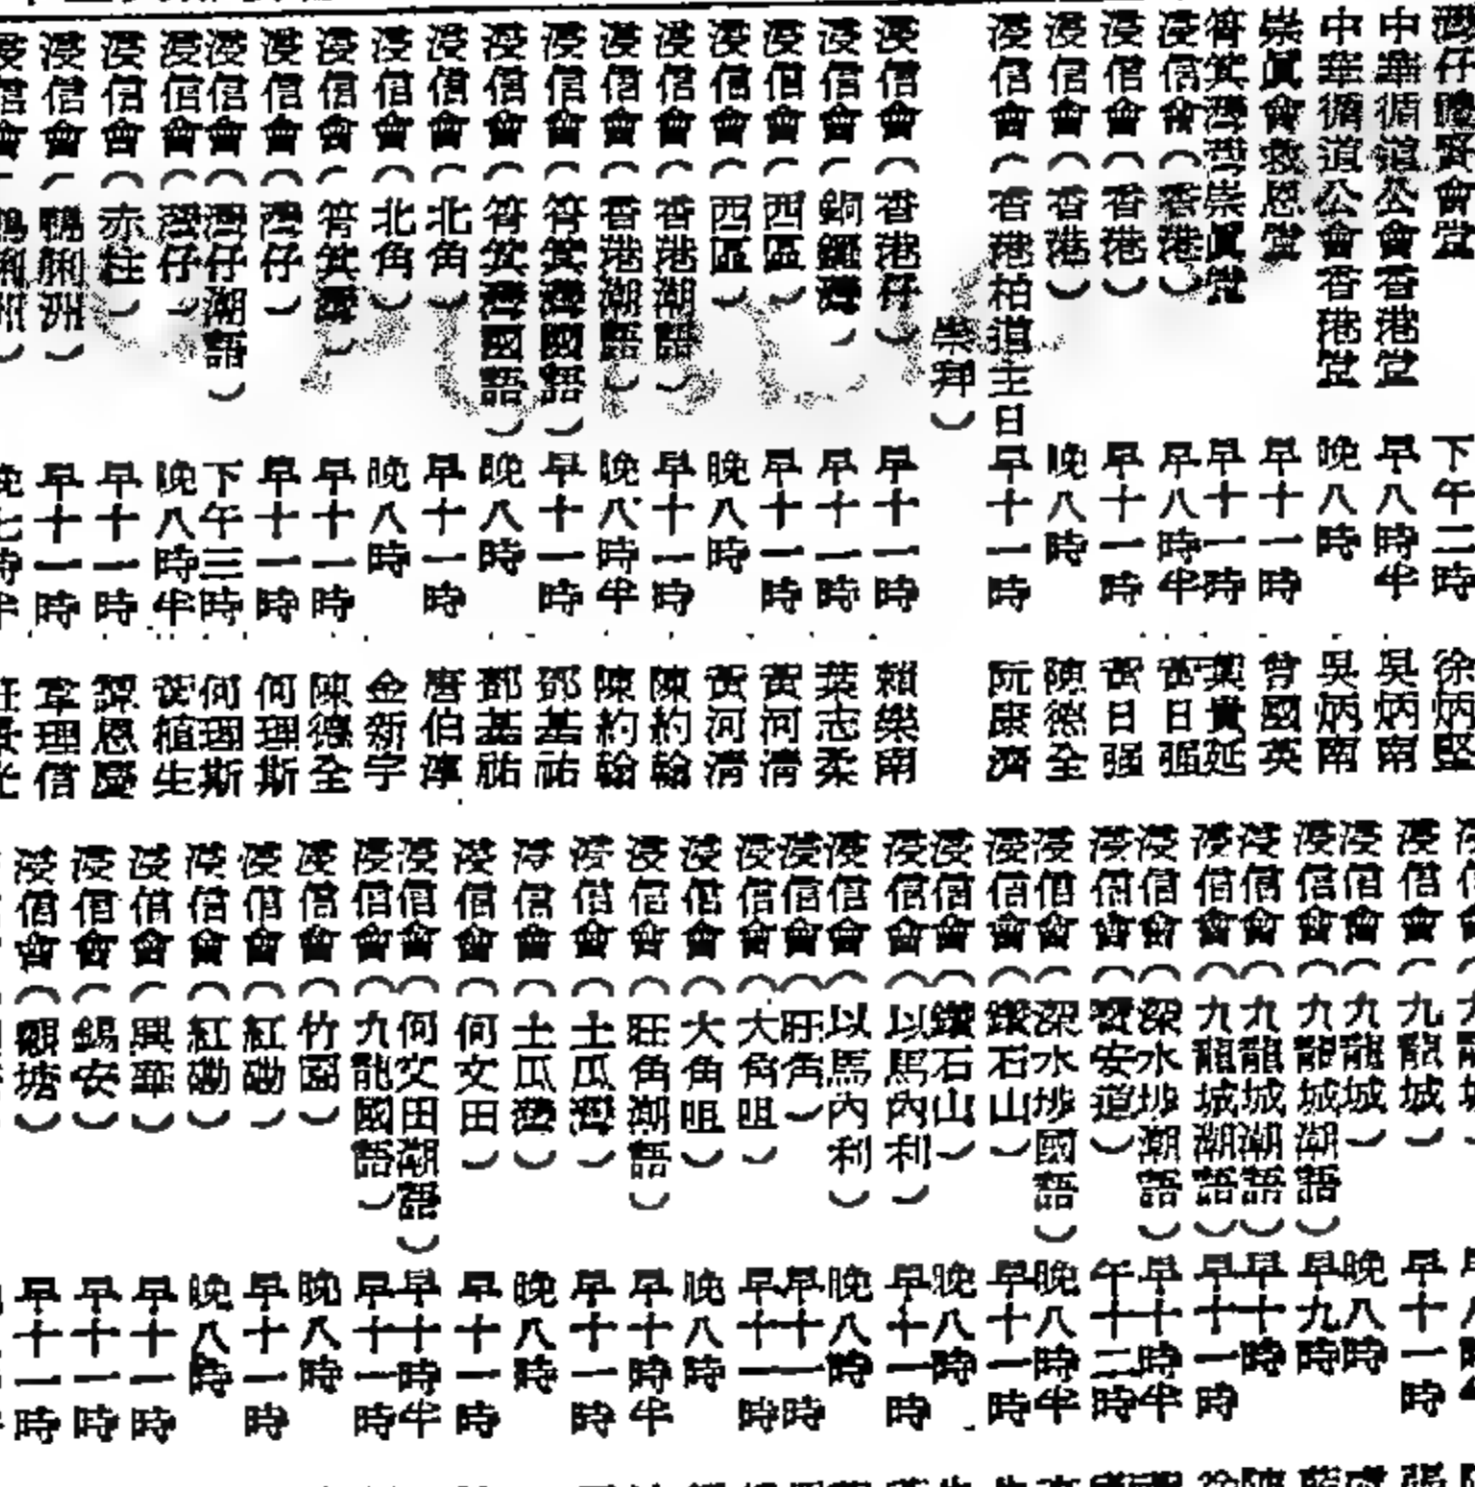 會堂 下午二時 徐炳堅
中華循道公會香港堂 早八時半 吳炳南
中華循道公會香港堂 晚八時 吳炳南
崇眞會救恩堂 早十一時 曾國英
筲箕灣崇眞堂 早十一時 葉貴延
浸信會（香港） 早八時半 日强
浸信會（香港） 早十一時 黃日强
浸信會（香港） 晚八時 陳德全
浸信會（香港柏道主日 早十一時 阮康濟
崇拜）
浸信會（香港仔） 早十一時 賴樂南
浸信會（銅鑼灣） 早十一時 葉志柔
浸信會（西區） 早十一時 黃河清
浸信會（西區） 晚八時 黃河清
浸信會（香港潮語） 早十一時 陳約翰
浸信會（香港潮語） 晚八時半 陳約翰
浸信會（筲箕灣國語） 早十一時 鄧基祐
浸信會（筲箕灣國語） 晚八時 鄧基祐
浸信會（北角） 早十一時 唐伯淳
浸信會（北角） 晚八時 金新宇
浸信會（筲箕灣） 早十一時 陳德全
浸信會（灣仔） 早十一時 何理斯
浸信會（灣仔潮語） 下午三時 何理斯
浸信會（灣仔） 晚八時半 黃植生
浸信會（赤柱） 早十一時 譚恩慶
浸信會（鴨脷洲） 早十一時 韋理信
浸信會（鴨脷洲） 晚七時半
浸信會（九龍城） 早十一時
浸信會（九龍城） 晚八時
浸信會（九龍城潮語） 早九時
浸信會（九龍城潮語） 早十時
浸信會（九龍城潮語） 早十一時
浸信會（深水埗潮語） 早十時半
浸信會（寶安道） 午十二時
浸信會（深水埗國語） 晚八時半
浸信會（鑽石山） 早十一時
浸信會（鑽石山） 晚八時
浸信會（以馬內利） 早十一時
浸信會（以馬內利） 晚八時
浸信會（旺角） 早十一時
浸信會（大角咀） 早十一時
浸信會（大角咀） 晚八時
浸信會（旺角潮語） 早十時半
浸信會（土瓜灣） 早十一時
浸信會（土瓜灣） 晚八時
浸信會（何文田） 早十一時
浸信會（何文田潮語） 早十時半
浸信會（九龍國語） 早十一時
浸信會（竹園） 晚八時
浸信會（紅磡） 早十一時
浸信會（紅磡） 晚八時
浸信會（興華） 早十一時
浸信會（錫安） 早十一時
浸信會（觀塘） 早十一時